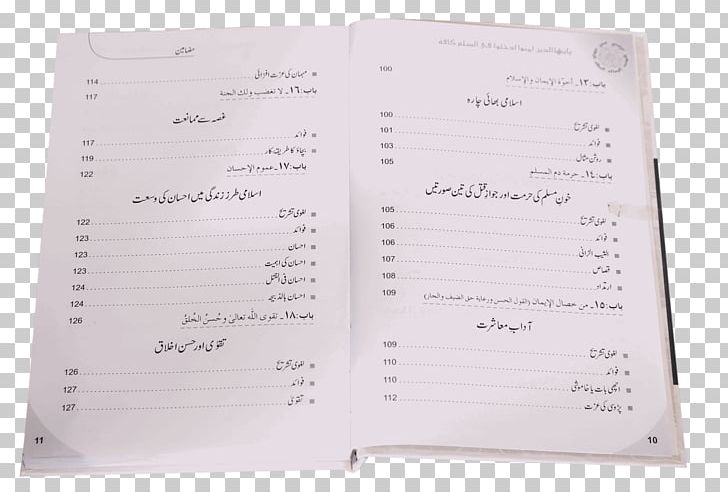 يايها الذين امنوا ادخلوا في السلم كافة
باب:١٣۔ أخوّة الإيمان والإسلام 100
اسلامی بھائی چارہ
لغوی تشریح 100
فوائد 101
روشن مثال 103
باب:١٤۔ حرمة دم المسلم 105
خونِ مسلم کی حرمت اور جوازِ قتل کی تین صورتیں
لغوی تشریح 105
فوائد 106
الثیب الزانی 106
قصاص 107
ارتداد 108
باب:١٥۔ من خصال الإيمان (القول الحسن ورعاية حق الضيف والجار) 109
آدابِ معاشرت
لغوی تشریح 109
فوائد 110
اچھی بات یا خاموشی 110
پڑوسی کی عزت 112
10
مضامین
مہمان کی عزت افزائی 114
باب:١٦۔ لا تغضب ولك الجنة 117
غصہ سے ممانعت
فوائد 117
بچاؤ کا طریقہ کار 119
باب:١٧۔ عموم الإحسان 122
اسلامی طرز زندگی میں احسان کی وسعت
لغوی تشریح 122
فوائد 123
احسان 123
احسان کی اہمیت 123
احسان فی القتل 124
احسان بالذبیحہ 124
باب:١٨۔ تقوى الله تعالىٰ وحُسنُ الخُلق 126
تقویٰ اور حسن اخلاق
لغوی تشریح 126
فوائد 127
تقویٰ 127
11